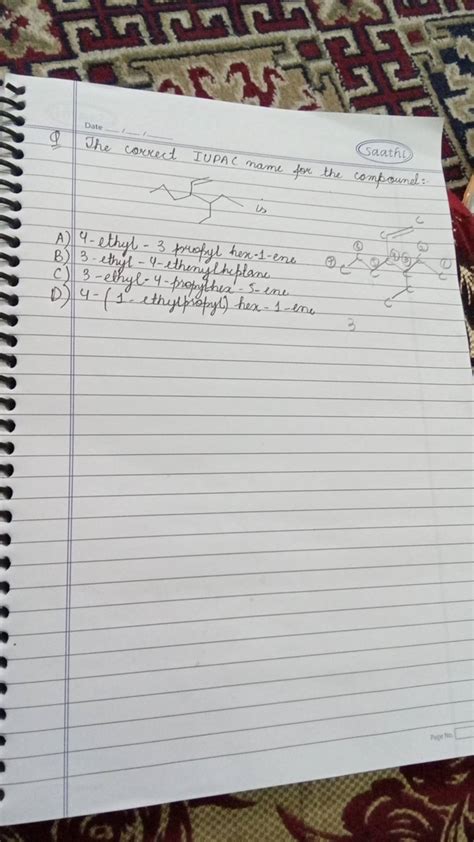 Saathi
Date __/__/__
Q The correct IUPAC name for the compound:-
is
A) 4-ethyl-3 propyl hex-1-ene
B) 3-ethyl-4-ethenylheptane
C) 3-ethyl-4-propylhex-5-ene
D) 4-(1-ethylpropyl) hex-1-ene
C
C
⑦ ⑥ ⑤ ④ ③ ② ①
C C C C C
C
C
3
Page No.